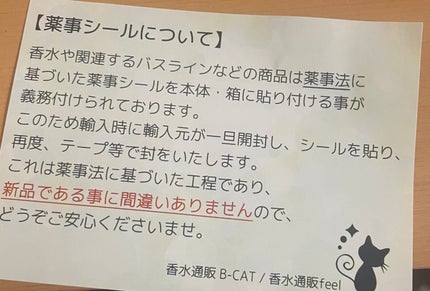 【薬事シールについて】
香水や関連するバスラインなどの商品は薬事法に
基づいた薬事シールを本体・箱に貼り付ける事が
義務付けられております。
このため輸入時に輸入元が一旦開封し、シールを貼り、
再度、テープ等で封をいたします。
これは薬事法に基づいた工程であり、
新品である事に間違いありませんので、
どうぞご安心くださいませ。
香水通販 B-CAT / 香水通販feel